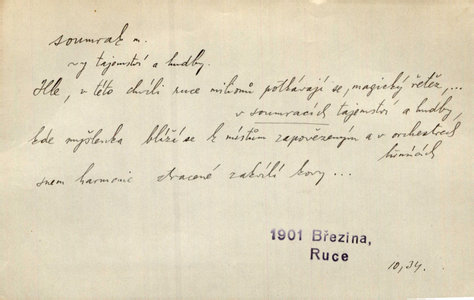 soumrak m.
~y tajemství a hudby.
Hle, v této chvíli ruce milionů potkávají se, magický řetěz,...
v soumracích tajemství a hudby,
kde myšlenka blíží se k místům zapovězeným a v orchestrech
snem harmonie ztracené zakvílí kovy ...
1901 Březina,
Ruce
10,34.